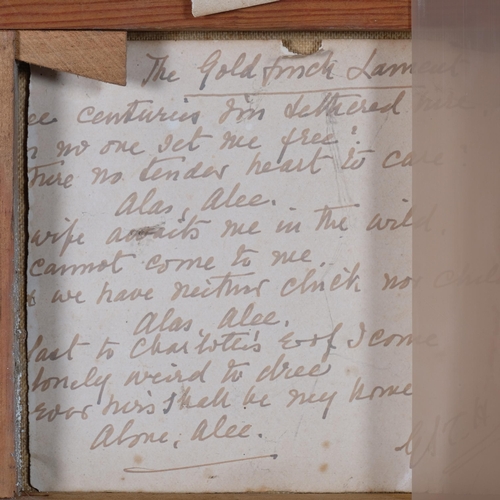 The Goldfinch Lament
ee centuries I'm tethered here,
no one set me free?
no tender heart to care
Alas, Alee.
wife awaits me in the wild,
cannot come to me.
& we have neither chick nor child
Alas, Alee.
last to Charlotte's I come
lonely weird to dree
shall be my home
Alone, Alee.